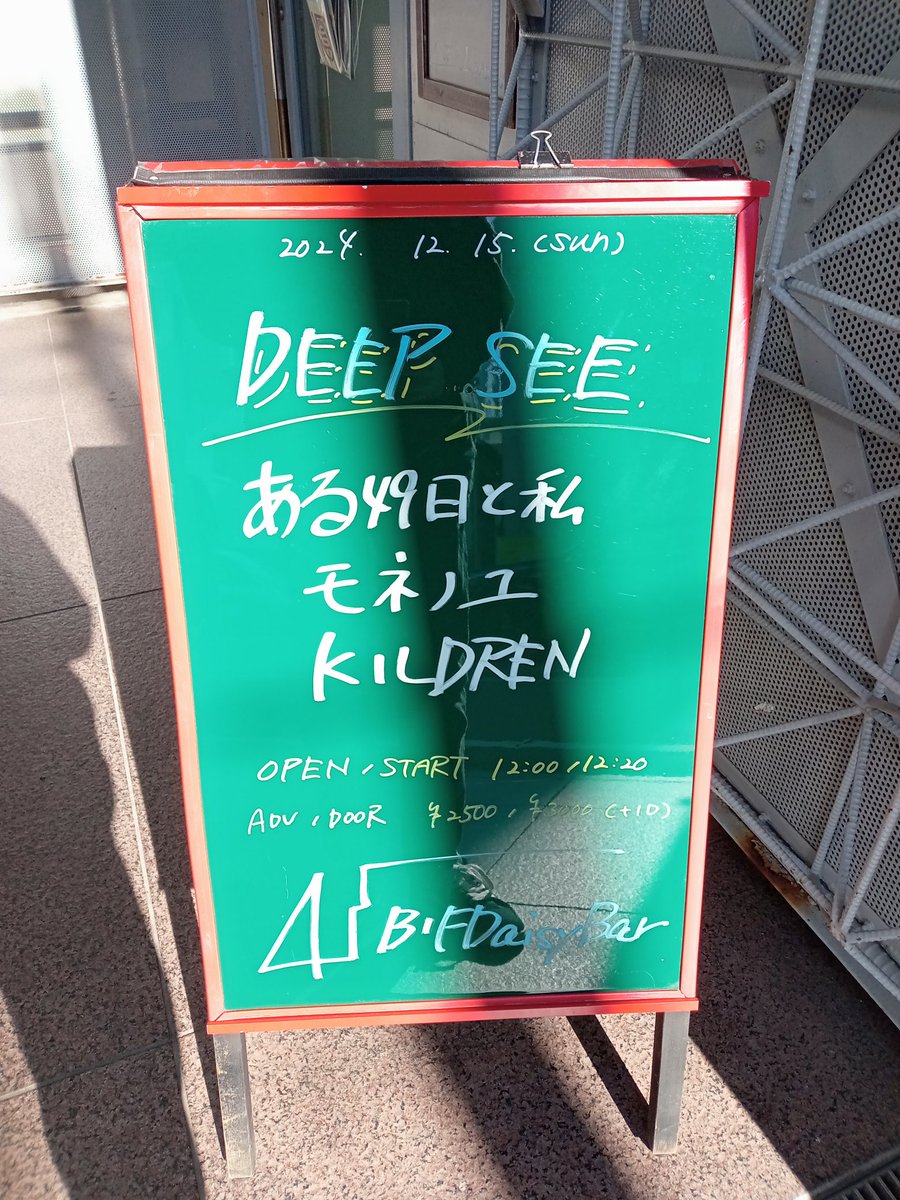 2024. 12. 15. (sun)
DEEP SEE
ある49日と私
モネノユ
KILDREN
OPEN / START 12:00 / 12:20
ADV / DOOR ¥2500 / ¥3000 (+1D)
B1F Daisy Bar